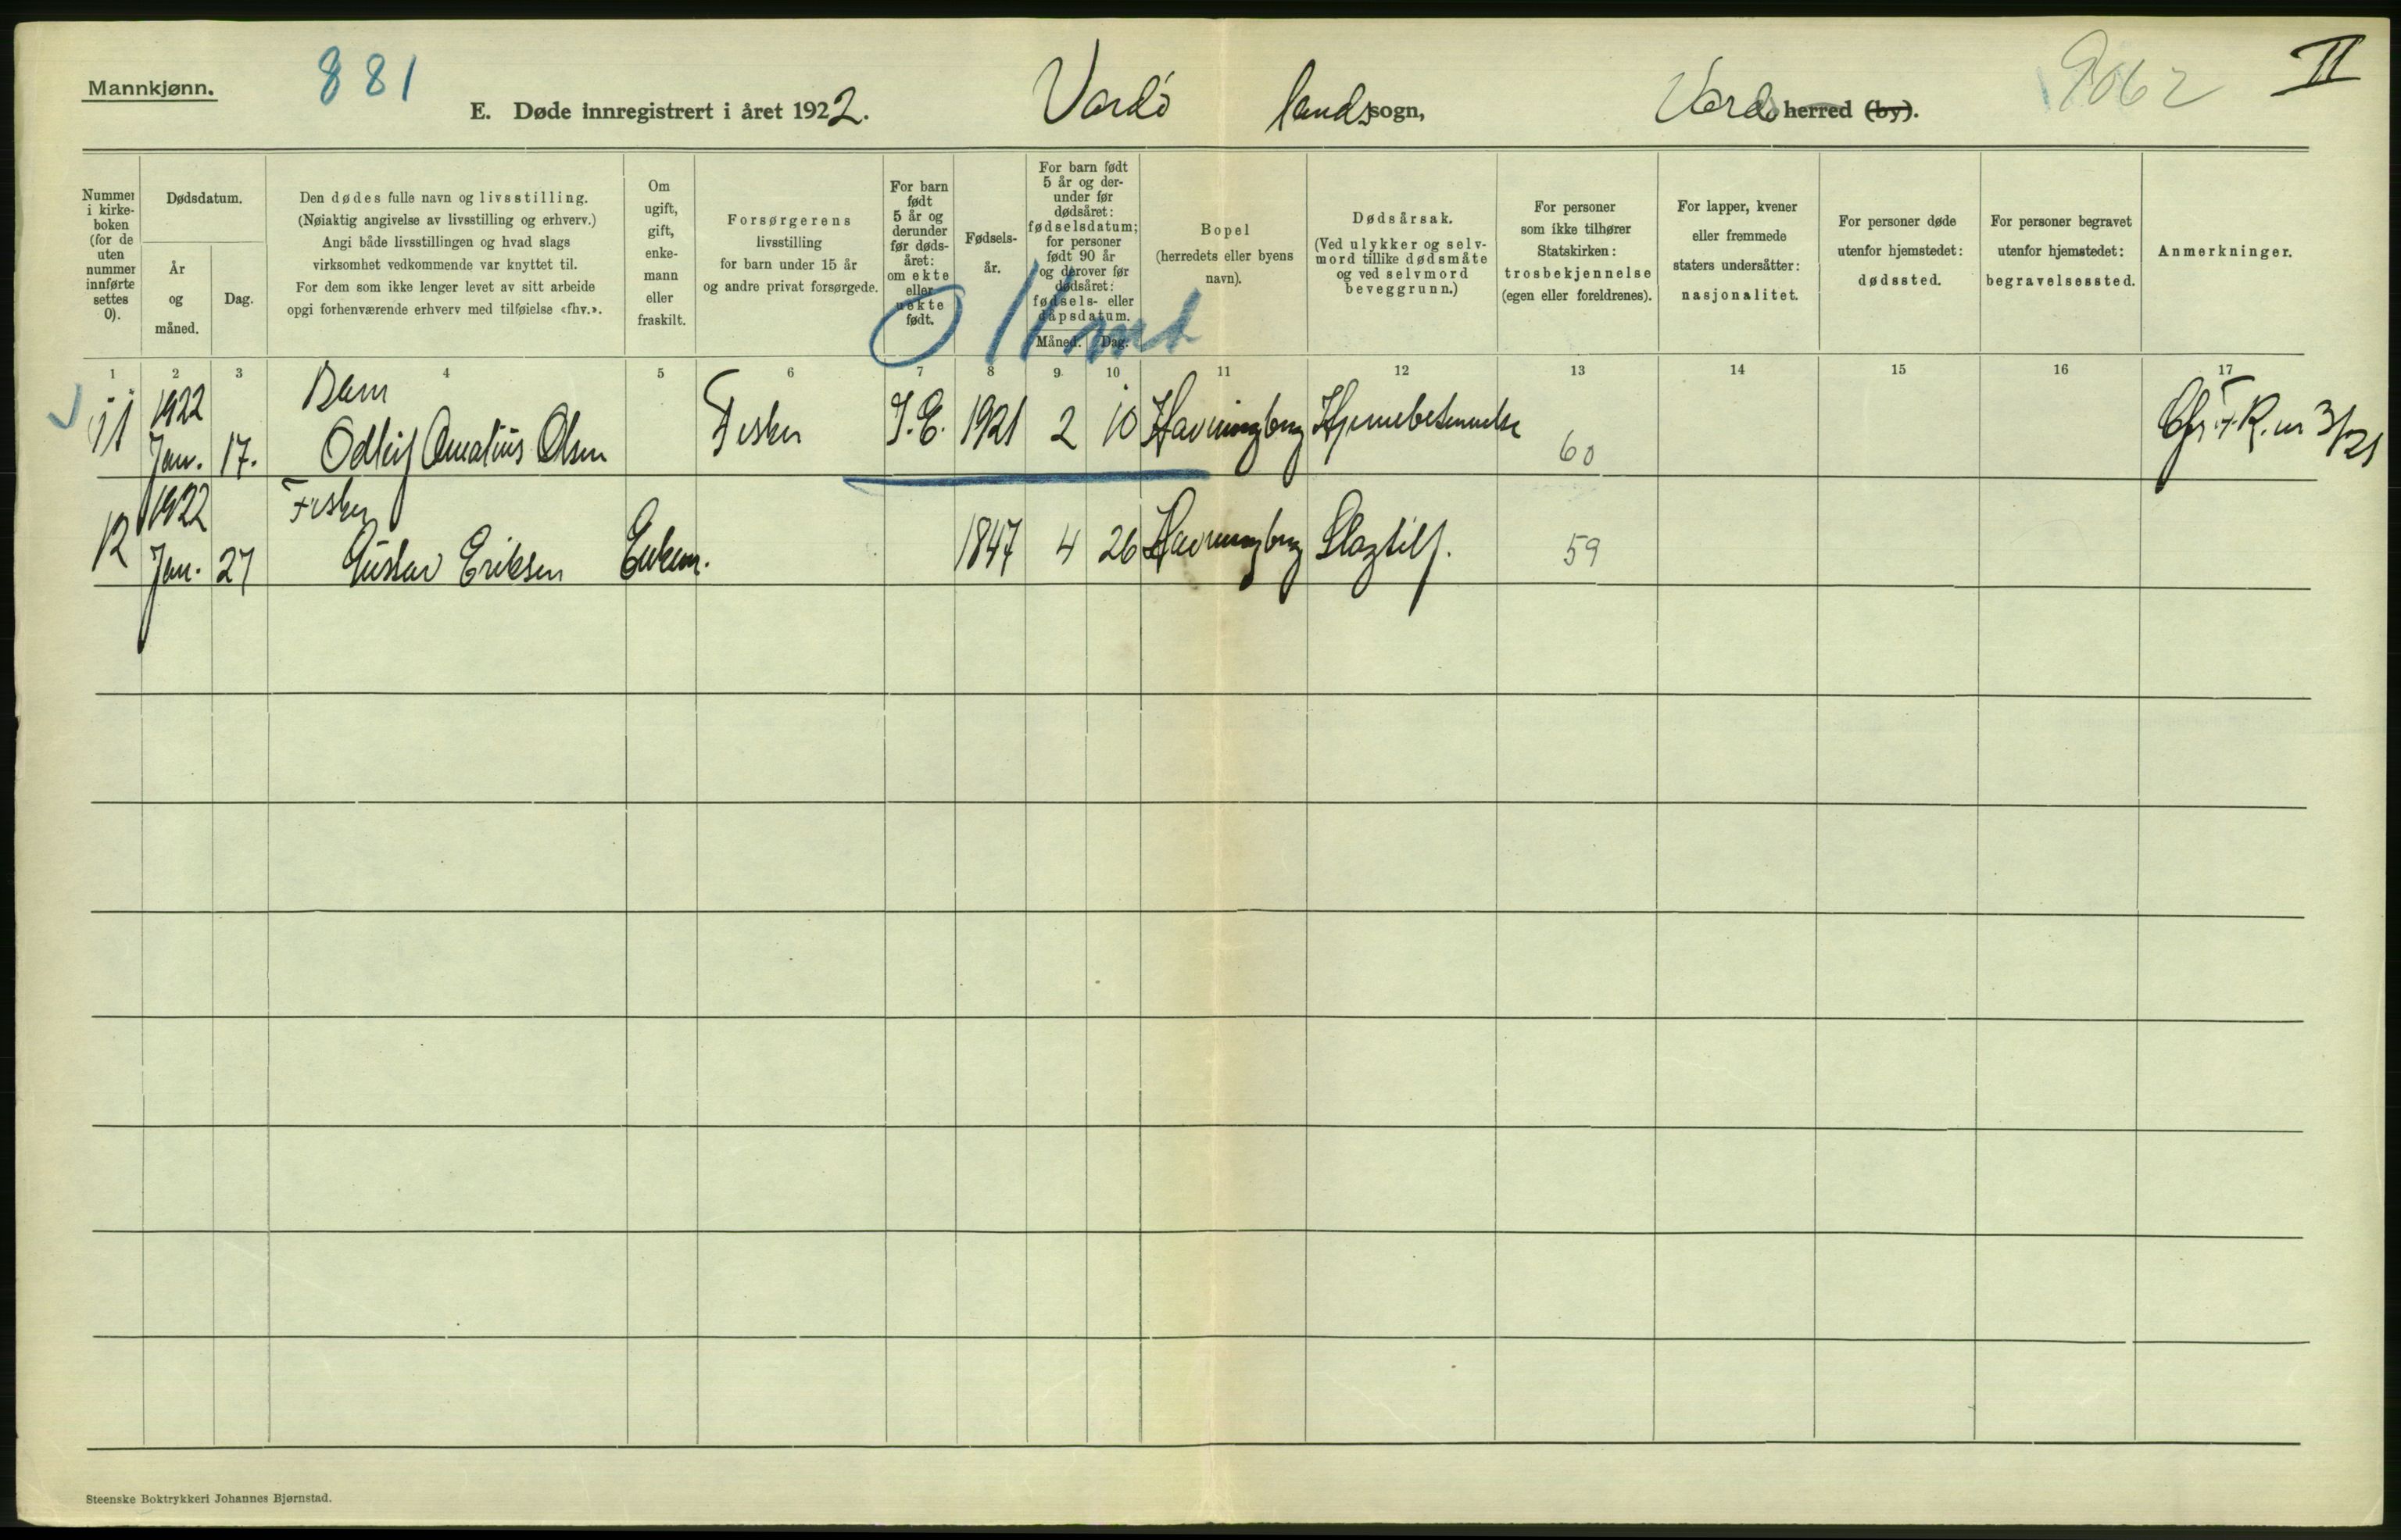 Mannkjønn.
881
E. Døde innregistrert i året 1922.
Vardö landssogn,
Vardö herred (by).
9062
II
Nummer i kirke-boken (for de uten nummer innførte settes 0).
Dødsdatum.
År og måned.
Dag.
Den dødes fulle navn og livsstilling.
(Nøiaktig angivelse av livsstilling og erhverv.)
Angi både livsstillingen og hvad slags
virksomhet vedkommende var knyttet til.
For dem som ikke lenger levet av sitt arbeide
opgi forhenværende erhverv med tilføielse «fhv.».
Om ugift, gift, enke-mann eller fraskilt.
Forsørgerens
livsstilling
for barn under 15 år
og andre privat forsørgede.
For barn født 5 år og derunder før døds-året: om ekte eller uekte født.
Fødsels-år.
For barn født 5 år og der-under før dødsåret: fødselsdatum; for personer født 90 år og derover før dødsåret: fødsels- eller dåpsdatum.
Måned. Dag.
Bopel
(herredets eller byens
navn).
Dødsårsak.
(Ved ulykker og selv-
mord tillike dødsmåte
og ved selvmord
beveggrunn.)
For personer
som ikke tilhører
Statskirken:
trosbekjennelse
(egen eller foreldrenes).
For lapper, kvener
eller fremmede
staters undersåtter:
nasjonalitet.
For personer døde
utenfor hjemstedet:
dødssted.
For personer begravet
utenfor hjemstedet:
begravelsessted.
Anmerkninger.
0 11 md
1 2 3 4 5 6 7 8 9 10 11 12 13 14 15 16 17
11 1922 Jan. 17. Barn Odleif Amatius Olsen Fisker I.E. 1921 2 10 Havningberg Hjernebetennelse 60 Cfr. F.R. nr 3/21
12 1922 Jan. 27 Fisker Gustav Eriksen Enkem. 1847 4 26 Havningberg Slagtilf. 59
Steenske Boktrykkeri Johannes Bjørnstad.